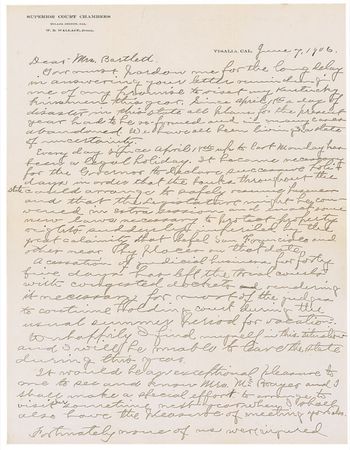 SUPERIOR COURT CHAMBERS
TULARE COUNTY, CAL.
W. B. WALLACE, JUDGE.
VISALIA, CAL. June 7, 1906.
Dear Mrs. Bartlett
You must pardon me for the long delay
in answering your letter reminding
me of my promise to visit my Kentucky
kinsmen this year. Since April 18th a day of
disaster in this state all plans for the present
year had to be revised and in many cases
abandoned. We have all been living in a state
of uncertainty.
Every day since April 18th up to last Monday has
been a legal holiday. It became necessary
for the Governor to declare successive holi
days in order that the banks throughout the
state could arrange to safely resume business
and that the Legislature might be con
vened in extra session and pass some
new laws necessary to protect property
rights suddenly imperiled by the
great calamity that befel San Francisco and
other near by places in the state.
A cessation of judicial business for forty
five days has left the trial courts
with congested dockets and rendering
it necessary for most of the judges
to continue holding court during the
usual summer period for vacation.
Unhappily I find myself in this situation
and I will be unable to leave the state
during this year.
It would be an exceptional pleasure to
me to see and know Mrs. and I
shall make a special effort to make my
visit sometime next year when I shall
also have the pleasure of meeting you
Fortunately none of us were injured